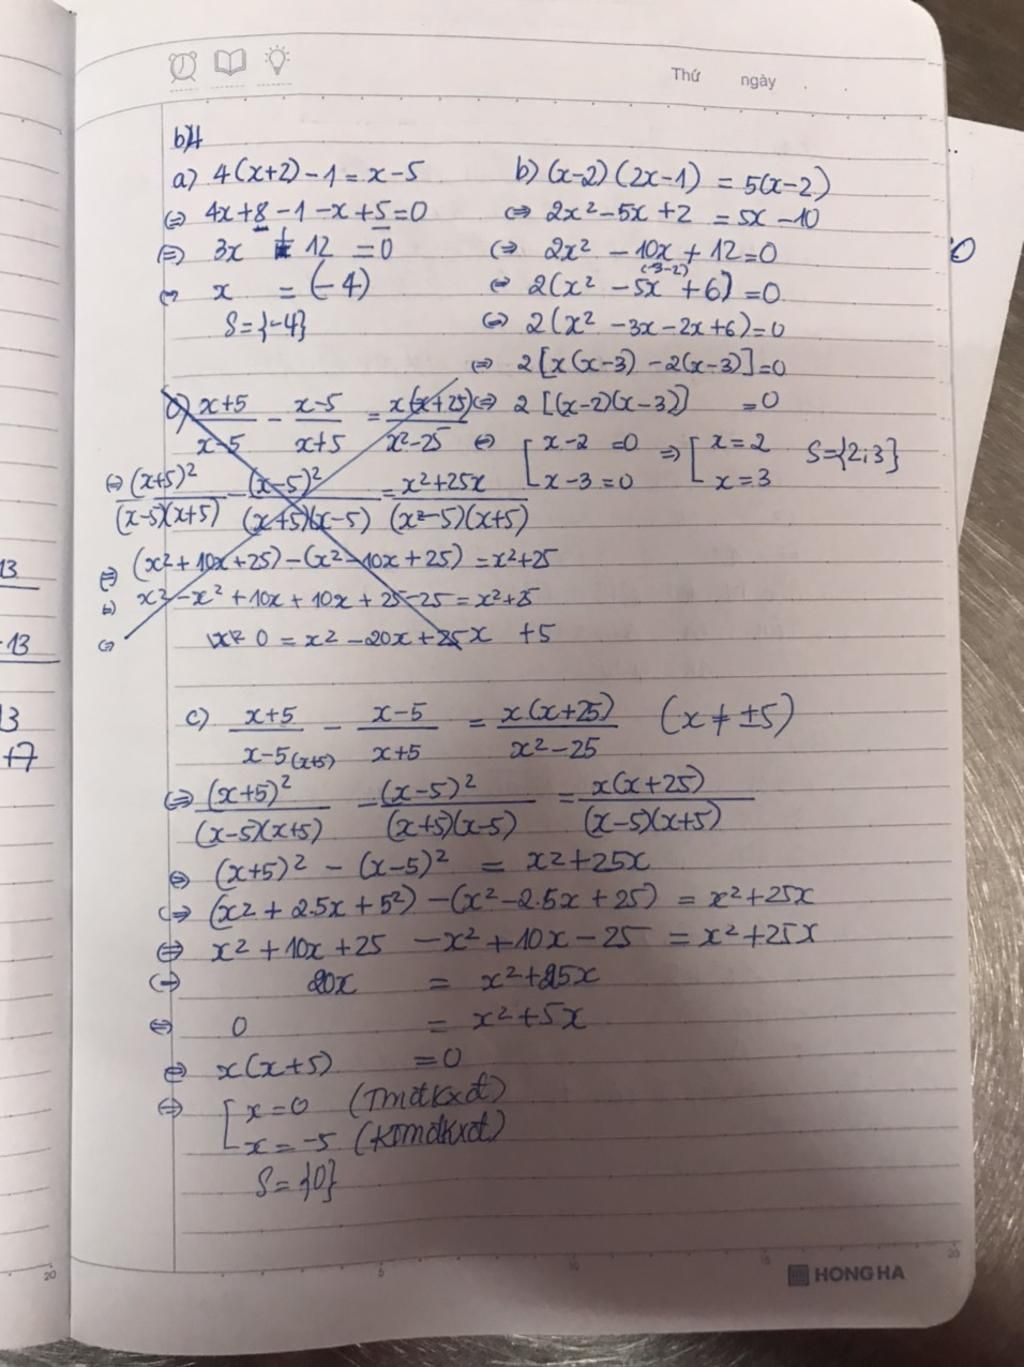 Thứ ngày
b)4
a) 4(x+2)-1=x-5
(=) 4x+8-1-x+5=0
(=) 3x + 12 =0
(=) x = (-4)
S={-4}
b) (x-2)(2x-1) = 5(x-2)
(=) 2x²-5x+2 = 5x-10
(=) 2x² - 10x + 12=0
(-3-2)
(=) 2(x² - 5x + 6) =0
(=) 2(x² -3x-2x+6)=0
(=) 2[x(x-3) -2(x-3)]=0
(=) 2 [(x-2)(x-3)] =0
(=) [ x-2 =0 => [ x=2 S={2;3}
x-3=0 x=3
c) x+5/x-5 - x-5/x+5 = x(x+25)/x²-25
(=) (x+5)²/(x-5)(x+5) - (x-5)²/(x+5)(x-5) = x²+25x/(x²-5)(x+5)
(=) (x²+10x+25)-(x²-10x+25) =x²+25
(=) x²-x²+10x+10x+25-25=x²+25
(=) 0 = x²-20x+25x +5
c) x+5/x-5(x+5) - x-5/x+5 = x(x+25)/x²-25 (x≠±5)
(=) (x+5)²/(x-5)(x+5) - (x-5)²/(x+5)(x-5) = x(x+25)/(x-5)(x+5)
(=) (x+5)² - (x-5)² = x²+25x
(=) (x²+2.5x+5²) -(x²-2.5x+25) = x²+25x
(=) x²+10x+25 -x²+10x-25 = x²+25x
(=) 20x = x²+25x
(=) 0 = x²+5x
(=) x(x+5) =0
(=) [ x=0 (Tmđkxđ)
x=-5 (Ktmđkxđ)
S={0}
13
-13
3
+7
20
5
10
15
20
HONG HA